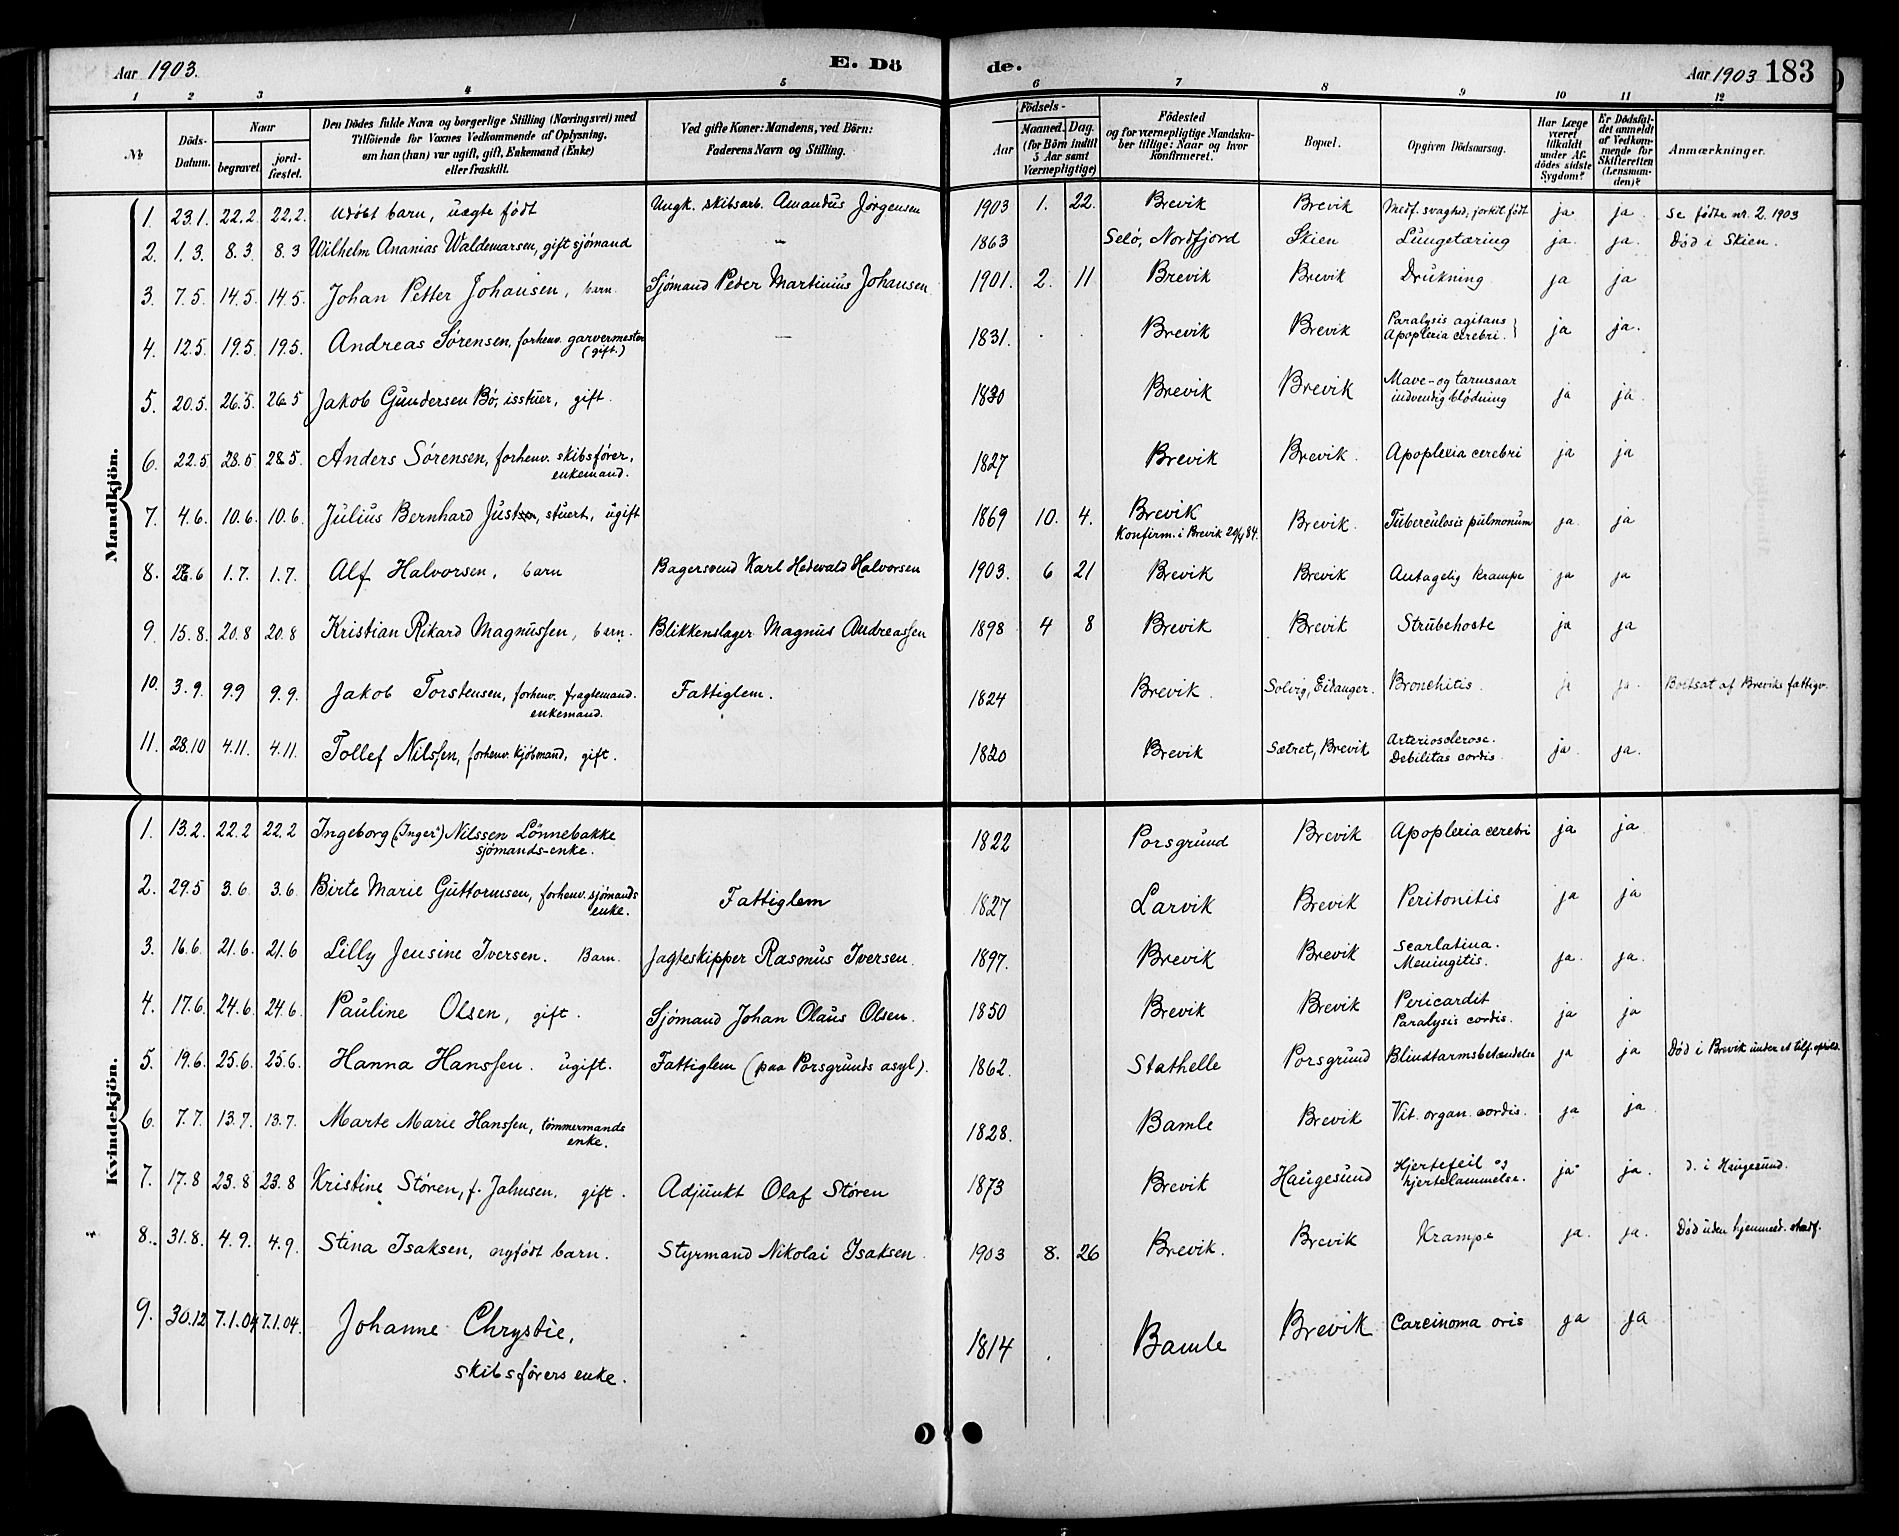 Aar 1903.
E. Dö
de.
Aar 1903 183
1 2 3 4 5 6 7 8 9 10 11 12
No
Döds-Datum.
Naar
begravet.
jord-fæstet.
Den Dödes fulde Navn og borgerlige Stilling (Næringsvei) med
Tilföiende for Voxnes Vedkommende af Oplysning,
om han (hun) var ugift, gift, Enkemand (Enke)
eller fraskilt.
Ved gifte Koner: Mandens, ved Börn:
Faderens Navn og Stilling.
Födsels-
Aar
Maaned. Dag.
(for Börn indtil
5 Aar samt
Værnepligtige)
Födested
og for værnepligtige Mandska-
ber tillige: Naar og hvor
konfirmeret.
Bopæl.
Opgiven Dödsaarsag.
Har Læge
været
tilkaldt
under Af-
dödes sidste
Sygdom?
Er Dödsfal-
det anmeldt
af Vedkom-
mende for
Skifteretten
(Lensman-
den)?
Anmærkninger.
Mandkjön.
1. 23.1. 22.2. 22.2. Udöbt barn, uægte födt Ungk. skibsarb. Amandus Jörgensen 1903 1. 22. Brevik Brevik Medf. svaghed, forkit födt ja ja. Se födte nr. 2. 1903
2. 1.3. 8.3. 8.3 Wilhelm Ananias Waldemarsen, gift sjömand – 1863 Selö, Nordfjord Skien Lungetæring ja. ja. Död i Skien.
3. 7.5. 14.5. 14.5. Johan Petter Johansen, barn. Sjömand Peder Martinius Johansen 1901. 2. 11 Brevik Brevik Drukning ja ja
4. 12.5. 19.5. 19.5. Andreas Sörensen, forhenv. garvermester (gift.) – 1831. Brevik Brevik Paralysis agitans Apoplexia cerebri. ja ja.
5. 20.5. 26.5. 26.5 Jakob Gundersen Bö, isstuer, gift. 1830 Brevik Brevik Mave- og tarmsaar indvendig blödning ja ja.
6. 22.5. 28.5 28.5. Anders Sörensen, forhenv. skibsförer, enkemand. 1827 Brevik Brevik. Apoplexia cerebri ja ja
7. 4.6. 10.6. 10.6. Julius Bernhard Just, stuert, ugift 1869 10. 4. Brevik Konfirm. i Brevik 20/4 84. Brevik. Tuberculosis pulmonum ja. ja
8. 26.6 1.7. 1.7. Alf Halvorsen, barn Bagersvend Karl Hedevald Halvorsen 1903. 6 21 Brevik Brevik Antagelig krampe ja ja
9. 15.8. 20.8 20.8 Kristian Rikard Magnussen, barn. Blikkenslager Magnus Andreassen 1898 4 8 Brevik Brevik Strubehoste ja ja
10. 3.9. 9.9 9.9. Jakob Torstensen, forhenv. fragtemand. enkemand. Fattiglem. 1824 Brevik. Solvig, Eidanger. Bronchitis. ja ja. Bortsat af Breviks fattigv.
11. 28.10 4.11. 4.11. Tollef Nilssen, forhenv. kjöbmand, gift. 1820 Brevik Sætret, Brevik Arteriosclerose. Debilitas cordis. ja. ja.
Kvindekjön.
1. 13.2. 22.2 22.2 Ingeborg ("Inger") Nilssen Lönnebakke sjömands-enke. 1822 Porsgrund Brevik Apoplexia cerebri ja ja
2. 29.5 3.6. 3.6. Birte Marie Guttormsen, forhenv. sjömands enke. Fattiglem 1827 Larvik Brevik Peritonitis ja ja
3. 16.6. 21.6. 21.6 Lilly Jensine Iversen. Barn. Jagteskipper Rasmus Iversen. 1897. Brevik Brevik Scarlatina. Meningitis. ja. ja.
4. 17.6. 24.6. 24.6. Pauline Olsen, gift. Sjömand Johan Olaus Olsen. 1850 Brevik Brevik Pericardit Paralysis cordis. ja ja
5. 19.6. 25.6. 25.6. Hanna Hanssen. ugift. Fattiglem (paa Porsgrunds asyl). 1862. Stathelle Porsgrund Blindtarmsbetændelse ja ja Död i Brevik under et tilf. ophold.
6. 7.7. 13.7. 13.7. Marte Marie Hanssen, tömmermands enke. 1828. Bamle Brevik Vit. organ. cordis. ja ja.
7. 17.8 23.8 23.8 Kristine Stören, f. Jahnsen, gift. Adjunkt Olaf Stören 1873 Brevik Haugesund Hjertefeil og hjertelammelse. ja ja. d. i Haugesund.
8. 31.8. 4.9. 4.9. Stina Isaksen, nyfödt barn. Styrmand Nikolai Isaksen. 1903 8. 26 Brevik. Brevik Krampe ja. ja. Död uden hjemmed. stadf.
9. 30.12 7.1.04 7.1.04. Johanne Chrystie, skibsförers enke. 1814 Bamle Brevik Carcinoma oris ja ja